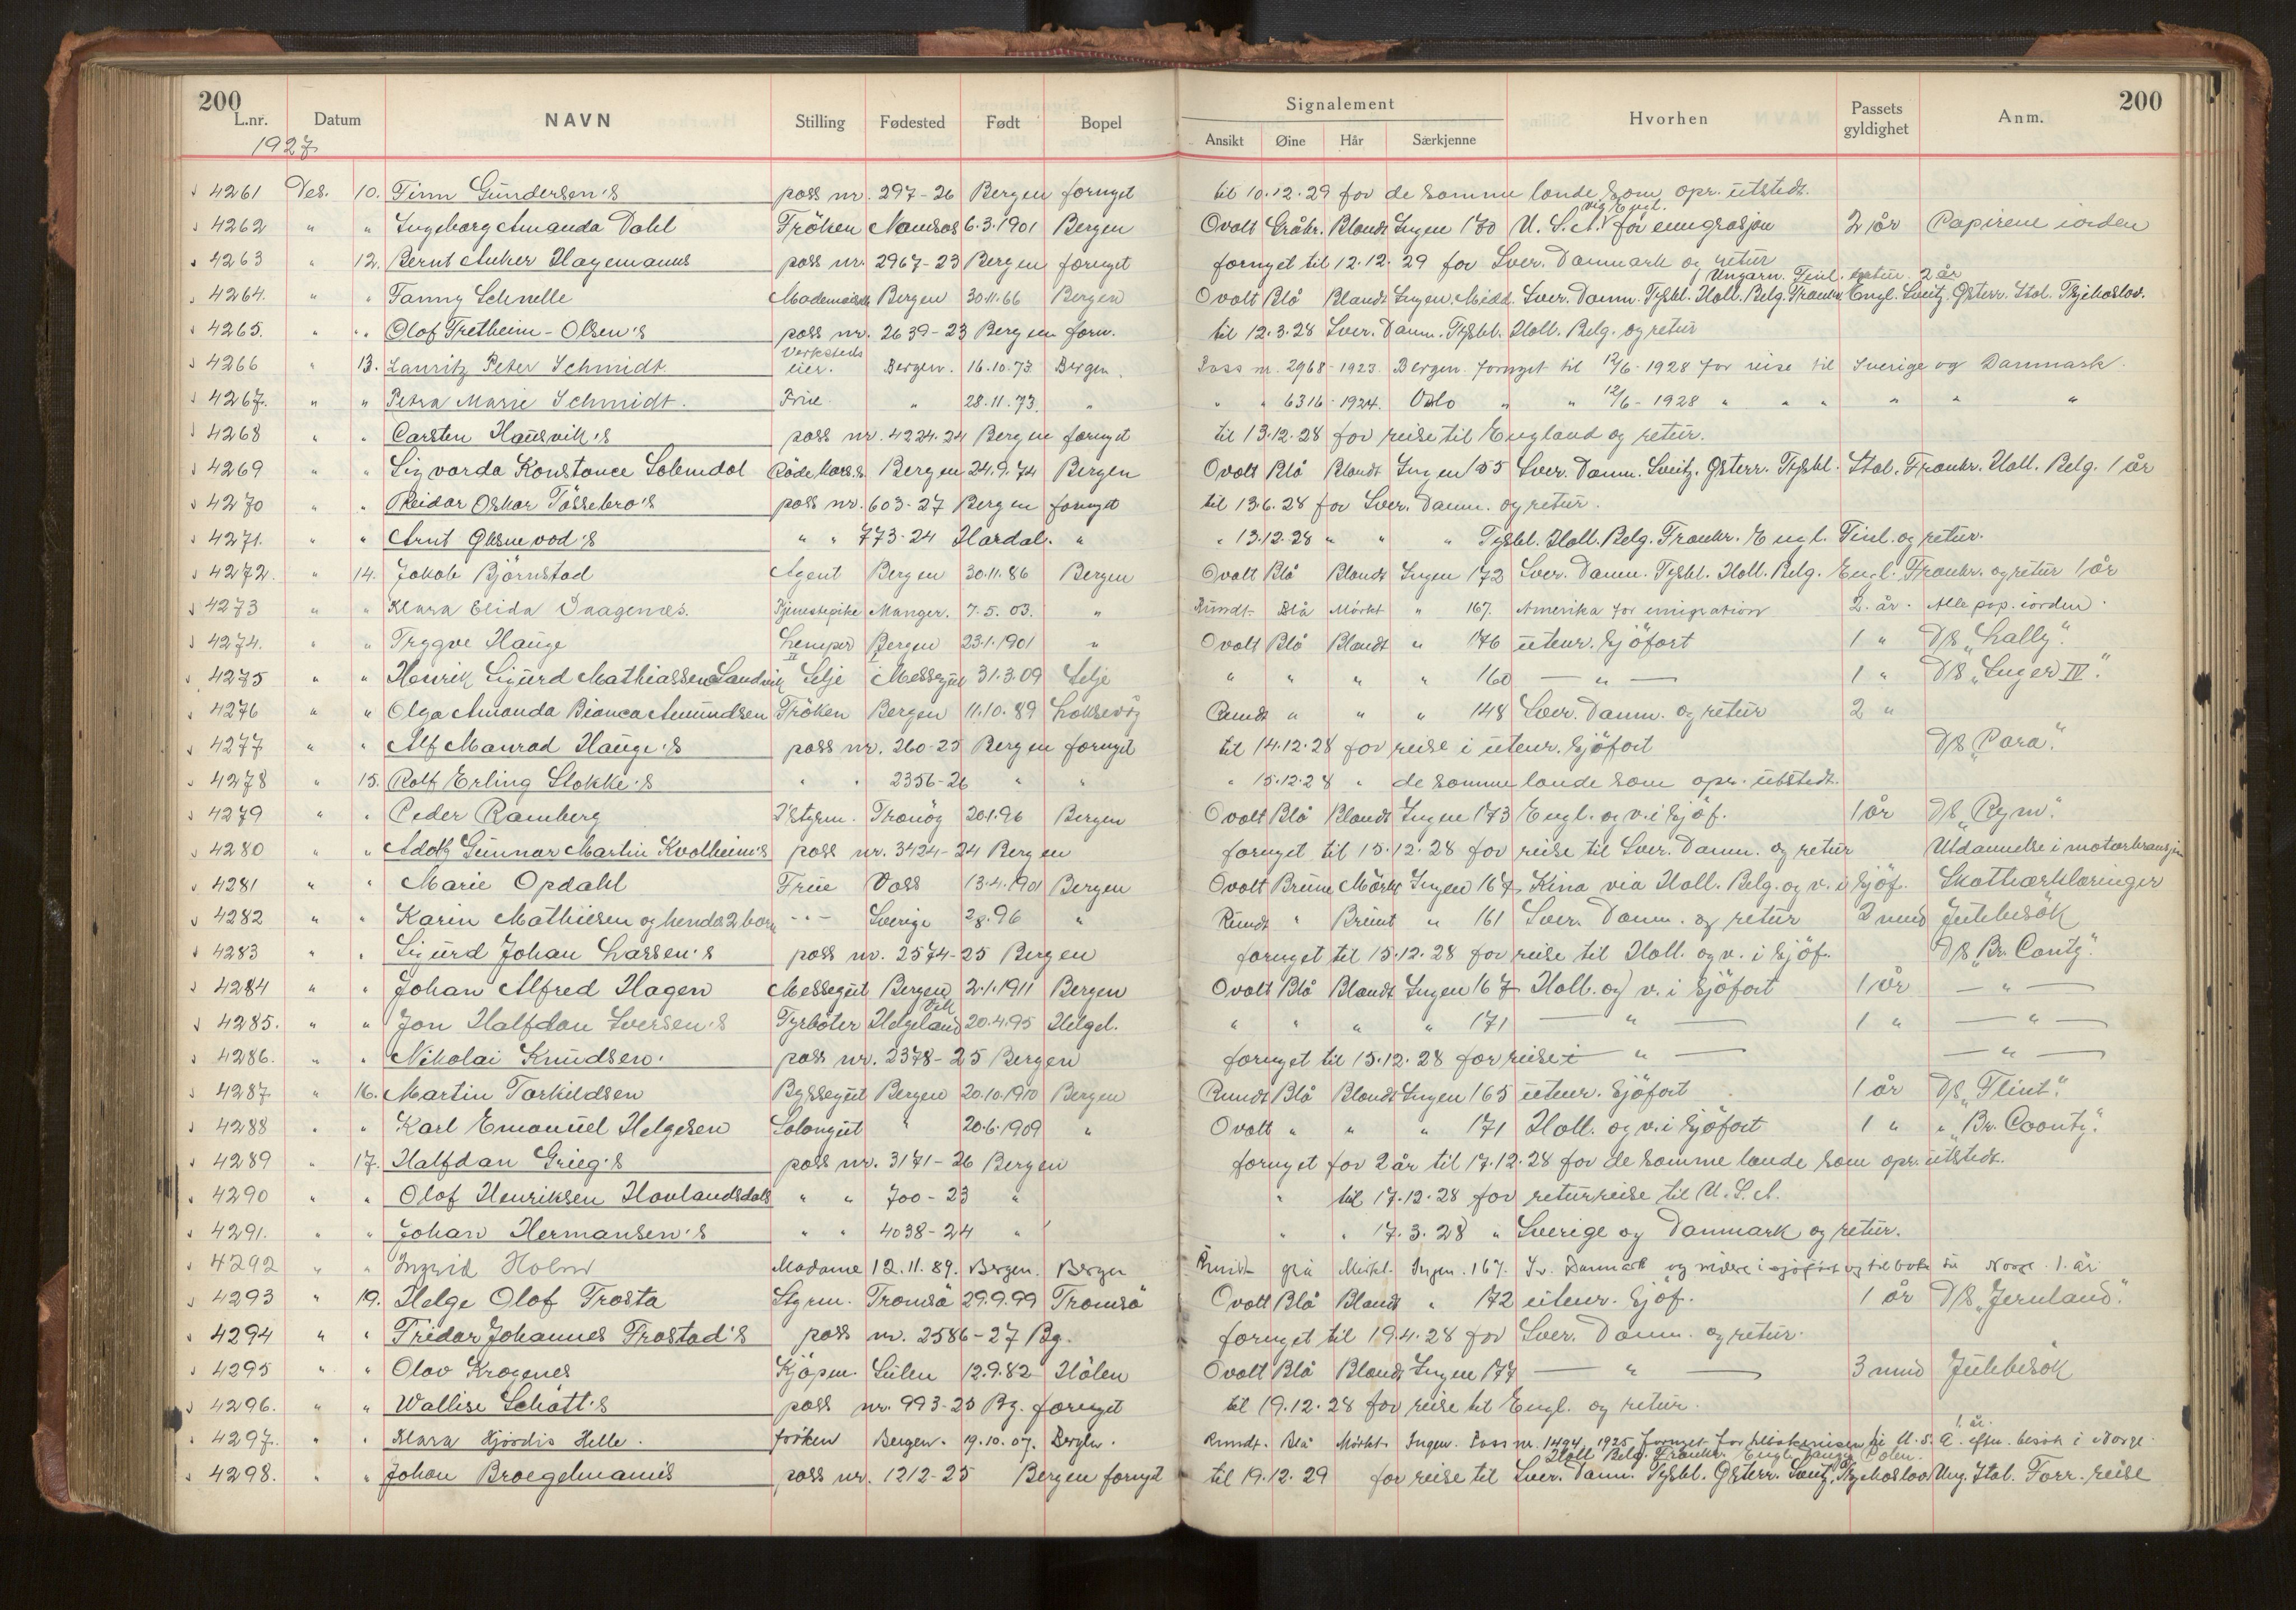 200
200
L.nr. Datum NAVN Stilling Fødested Født Bopel Signalement Ansikt Øine Hår Særkjenne Hvorhen Passets gyldighet Anm.
1927
4261 Des. 10. Finn Gundersen's pass nr. 297-26 Bergen fornyet til 10.12.29 for de samme lande som opr. utstedt.
via Engl.
4262 " " Ingeborg Amanda Dahl Frøken Namsos 6.3.1901 Bergen Ovalt Gråbr. Blandt Ingen 170 U.S.A. for emigrasjon 2 år Papirene iorden
4263 " 12. Bernt Anker Hagemanns pass nr. 2967-23 Bergen fornyet fornyet til 12.12.29 for Sver. Danmark og retur
Ungarn. Finl. retur 2 år
4264. " " Fanny Schnelle Bergen 30.11.66 Bergen Ovalt Blå Blandt Ingen. Midd. Sver. Danm. Tyskl. Holl. Belg. Frankr. Engl. Sveitz. Østerr. Ital. Tsjekoslov.
4265. " " Olof Tretheim-Olsen's pass nr. 2639-23 Bergen forn. til 12.3.28 Sver. Danm. Tyskl. Holl. Belg. og retur
4266 " 13. Lauritz Peter Schmidt. Verksteds eier. Bergen. 16.10.73 Bergen. Pass nr. 2968-1923. Bergen fornyet til 12/6-1928 for reise til Sverige og Danmark.
4267. " " Petra Marie Schmidt. Frue. " 28.11.73. " " " 6316-1924. Oslo " " 12/6-1928 " " " " " "
4268 " " Carsten Hausvik's pass nr. 4224.24 Bergen fornyet til 13.12.28 for reise til England og retur.
4269 " " Sigvarda Konstance Solemdal Bergen 24.9.74 Bergen Ovalt Blå Blandt Ingen 155 Sver. Danm. Sveitz. Østerr. Tyskl. Ital. Frankr. Holl. Belg. 1 år
4270 " " Reidar Oskar Tøssebro's pass nr. 603-27 Bergen fornyet til 13.6.28 for Sver. Danm. og retur.
4271. " " Arnt " " 773-24 Hardal. " " 13.12.28 " " " Tyskl. Holl. Belg. Frankr. Engl. Finl. og retur.
4272. " 14. Jakob Bjørnstad Agent Bergen 30.11.86 Bergen Ovalt Blå Blandt Ingen 172 Sver. Danm. Tyskl. Holl. Belg. Engl. Frankr. og retur 1 år
4273 " " Klara Elida Vaagenes. Tjenestepike Manger. 7.5.03. " Rundt Blå Mørkt " 167. Amerika for emigration 2 år. Alle pap. iorden.
4274. " " Trygve Hauge Lemper Bergen 23.1.1901 " Ovalt Blå Blandt " 176 i utenr. sjøfart 1 " D/S "Lally".
4275 " " Henrik Sigurd Mathiassen Sandvik Selje Messegut 31.3.09 Selje " " " " 160 — " — 1 " D/S "Inger IV".
4276 " " Olga Amanda Bianca Amundsen Frøken Bergen 11.10.89 Loksevåg Rundt " " " 148 Sver. Danm. og retur 2 "
4277 " " Alf Manrad Hauge's pass nr. 260-25 Bergen fornyet til 14.12.28 for reise i utenr. sjøfart D/S "Cara".
4278 " 15. Rolf Erling Stokke's " " 2356-26 " " " 15.12.28 " de samme lande som opr. utstedt.
4279 " " Peder Ramberg Styrm. 20.1.96 Bergen Ovalt Blå Blandt Ingen 173 Engl. og v. i sjøf. 1 år D/S "Rym".
4280 " " Adolf Gunnar Martin Kvalheim's pass nr. 3424-24 Bergen fornyet til 15.12.28 for reise til Sver. Danm. og retur Utdannelse i motorbransjen
4281 " " Marie Opdahl Frue Voss 13.4.1901 Bergen Ovalt Brune Mørkt Ingen 167 Kina via Holl. Belg. og v. i sjøf. Skatteærklæringer
4282 " " Karin Mathiesen og hendes 2 barn - " - Sverige 2/8.96 " Rundt " Brunt " 161 Sver. Danm. og retur 2 mnd Julebesøk
4283 " " Sigurd Johan Larsen's pass nr. 2574-25 Bergen fornyet til 15.12.28 for reise til Holl. og v. i sjøf. D/S "Br. Conty".
4284 " " Johan Alfred Hagen Messegut Bergen 2.1.1911 Bergen Ovalt Blå Blandt Ingen 167 Holl. og v. i sjøfart 1 år — " —
4285. " " Jon Halfdan Iversen's Fyrbøter Helgeland 20.4.95 Helgel. " " " " 171 — " — 1 " — " —
4286. " " Nikolai Knudsen. pass nr. 2378-25 Bergen fornyet til 15.12.28 for reise i — " — — " —
4287 " 16. Martin Torkildsen Byssegut Bergen 20.10.1910 Bergen Rundt Blå Blandt Ingen 165 i utenr. sjøfart 1 år D/S "Flint".
4288 " " Karl Emanuel Helgesen Salongut " 20.6.1909 " Ovalt " " " 171 Holl. og v. i sjøfart 1 " " "Br. Coonty".
4289 " 17. Halfdan Grieg's pass nr. 3171-26 Bergen fornyet for 2 år til 17.12.28 for de samme lande som opr. utstedt.
4290 " " Olof Henriksen Hovlandsdals " " 700-23 " " til 17.12.28 for returreise til U.S.A.
4291. " " Johan Hermansen's " " 4038-24 " " " 17.3.28 " Sverige og Danmark og retur.
4292 " " Ingrid Holm Madame 12.11.89. Bergen. Bergen Rundt grå Mørkt. Ingen. 167. Sv. Danmark og videre i sjøfart og tilbake til Norge. 1 år
4293 " 19. Helge Olof Trosta Styrm. Tromsø 29.9.99 Tromsø Ovalt Blå Blandt " 172 i utenr. sjøf. 1 år D/S "Jernland".
4294 " " Fridar Johannes Frostad's pass nr. 2586-27 Bg. fornyet til 19.4.28 for Sver. Danm. og retur.
4295 " " Olav Krogenes Kjøpm. Sulen 12.9.82 Hålen Ovalt Blå Blandt Ingen 177 — " — 3 mnd Julebesøk
4296. " " Wallise Schøtt's pass nr. 993-25 Bg. fornyet til 19.12.28 for reise til Engl. og retur.
1. år.
4297. " " Klara Hjørdis Helle. frøken Bergen. 19.10.07. Bergen. Rundt. Blå Mørkt. Ingen. Pass nr. 1494-1925 fornyet for tilbakereisen til U.S.A. efter besøk i Norge.
Holl. Belg. Frankr. Engl. Polen.
4298. " " Johan Broegelmann's pass nr. 1212-25 Bergen fornyet til 19.12.29 for reise til Sver. Danm. Tyskl. Østerr. Sveitz. Tsjekoslov. Ung. Ital. Forr. reise